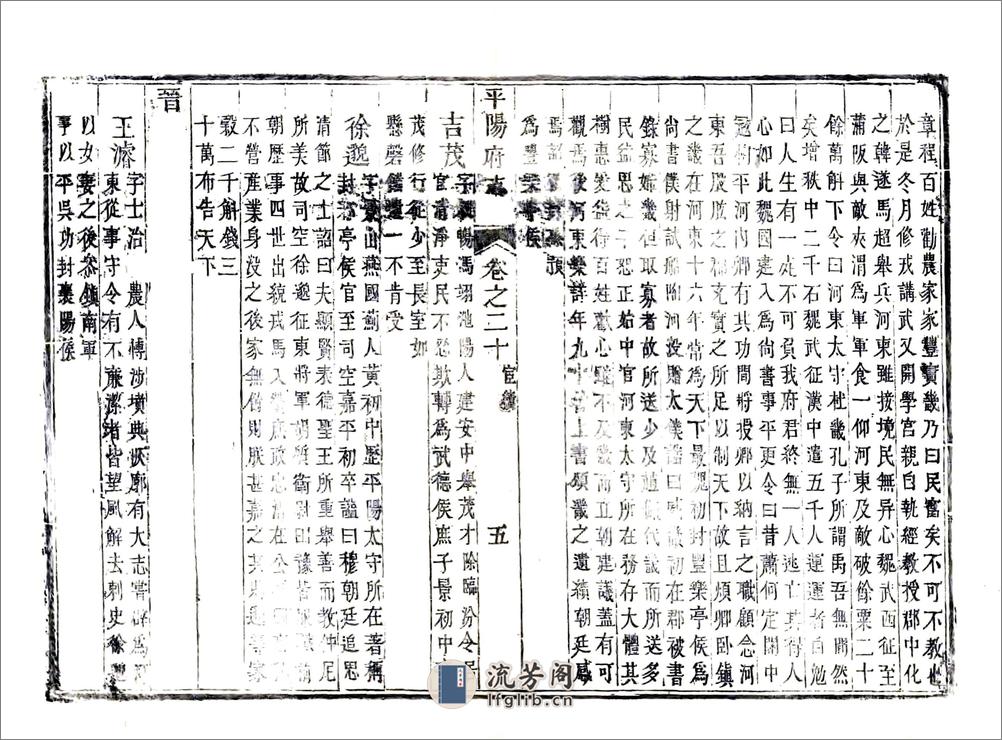 章程百姓勸農家家豐實畿乃曰民富矣不可不教也
於是冬月修戎講武又開學宮親自執經教授郡中化
之韓遂馬超舉兵河東雖接境民無異心魏武西征至
蒲阪與敵夾渭為軍軍食一仰河東及敵破餘粟二十
餘萬斛下令曰河東太守杜畿孔子所謂禹吾無間然
矣增秩中二千石魏武征漢中遣五千人運運者自勉
曰人生有一死不可負我府君終無一人逃亡其得人
心如此魏國建入為尚書事平更令曰昔蕭何定關中
寇恂平河內卿有其功間將授卿以納言之職顧念河
東吾股肱之郡充實之所足以制天下故且煩卿臥鎮
之畿在河東十六年常為天下最魏初封豐樂亭侯為
尚書僕射試船陶河没贈太僕諡曰戴畿初在郡被書
錄寡婦畿但取寡者故所送少及趙儼代畿而所送多
民益思之子恕正始中官河東太守所在務存大體其
樹惠愛益得百姓歡心雖不及畿而在朝建議蓋有可
觀焉後河東樂詳年九十餘上書頌畿之遺績朝廷感
焉詔封 預
為豐樂亭侯
平陽府志 卷之二十 宦績 五
吉茂 字叔暢馮翊池陽人建安中舉茂才除臨汾令居
官清淨吏民不忍欺轉為武德侯庶子景初中
茂修行從少至長室如
懸磬 一不肯受
徐邈 字景山燕國薊人黃初中歷平陽太守所在著稱
封 亭侯官至司空嘉平初卒諡曰穆朝廷追思
清節之士詔曰夫顯賢表德聖王所重舉善而教仲尼
所美故司空徐邈征東將軍胡質衛尉田豫皆服職前
朝歷事四世出統戎馬入贊庶政忠清在公
不營產業身没之後家無餘財朕甚嘉之其賜邈等家
穀二千斛錢三
十萬布告天下
晉
王濬 字士治 農人博涉墳典恢廓有大志嘗辟為河
東從事守令有不廉潔者皆望風解去刺史徐邈
以女妻之後參鎮南軍
事以平吳功封襄陽侯
流芳阁
lfglib.cn